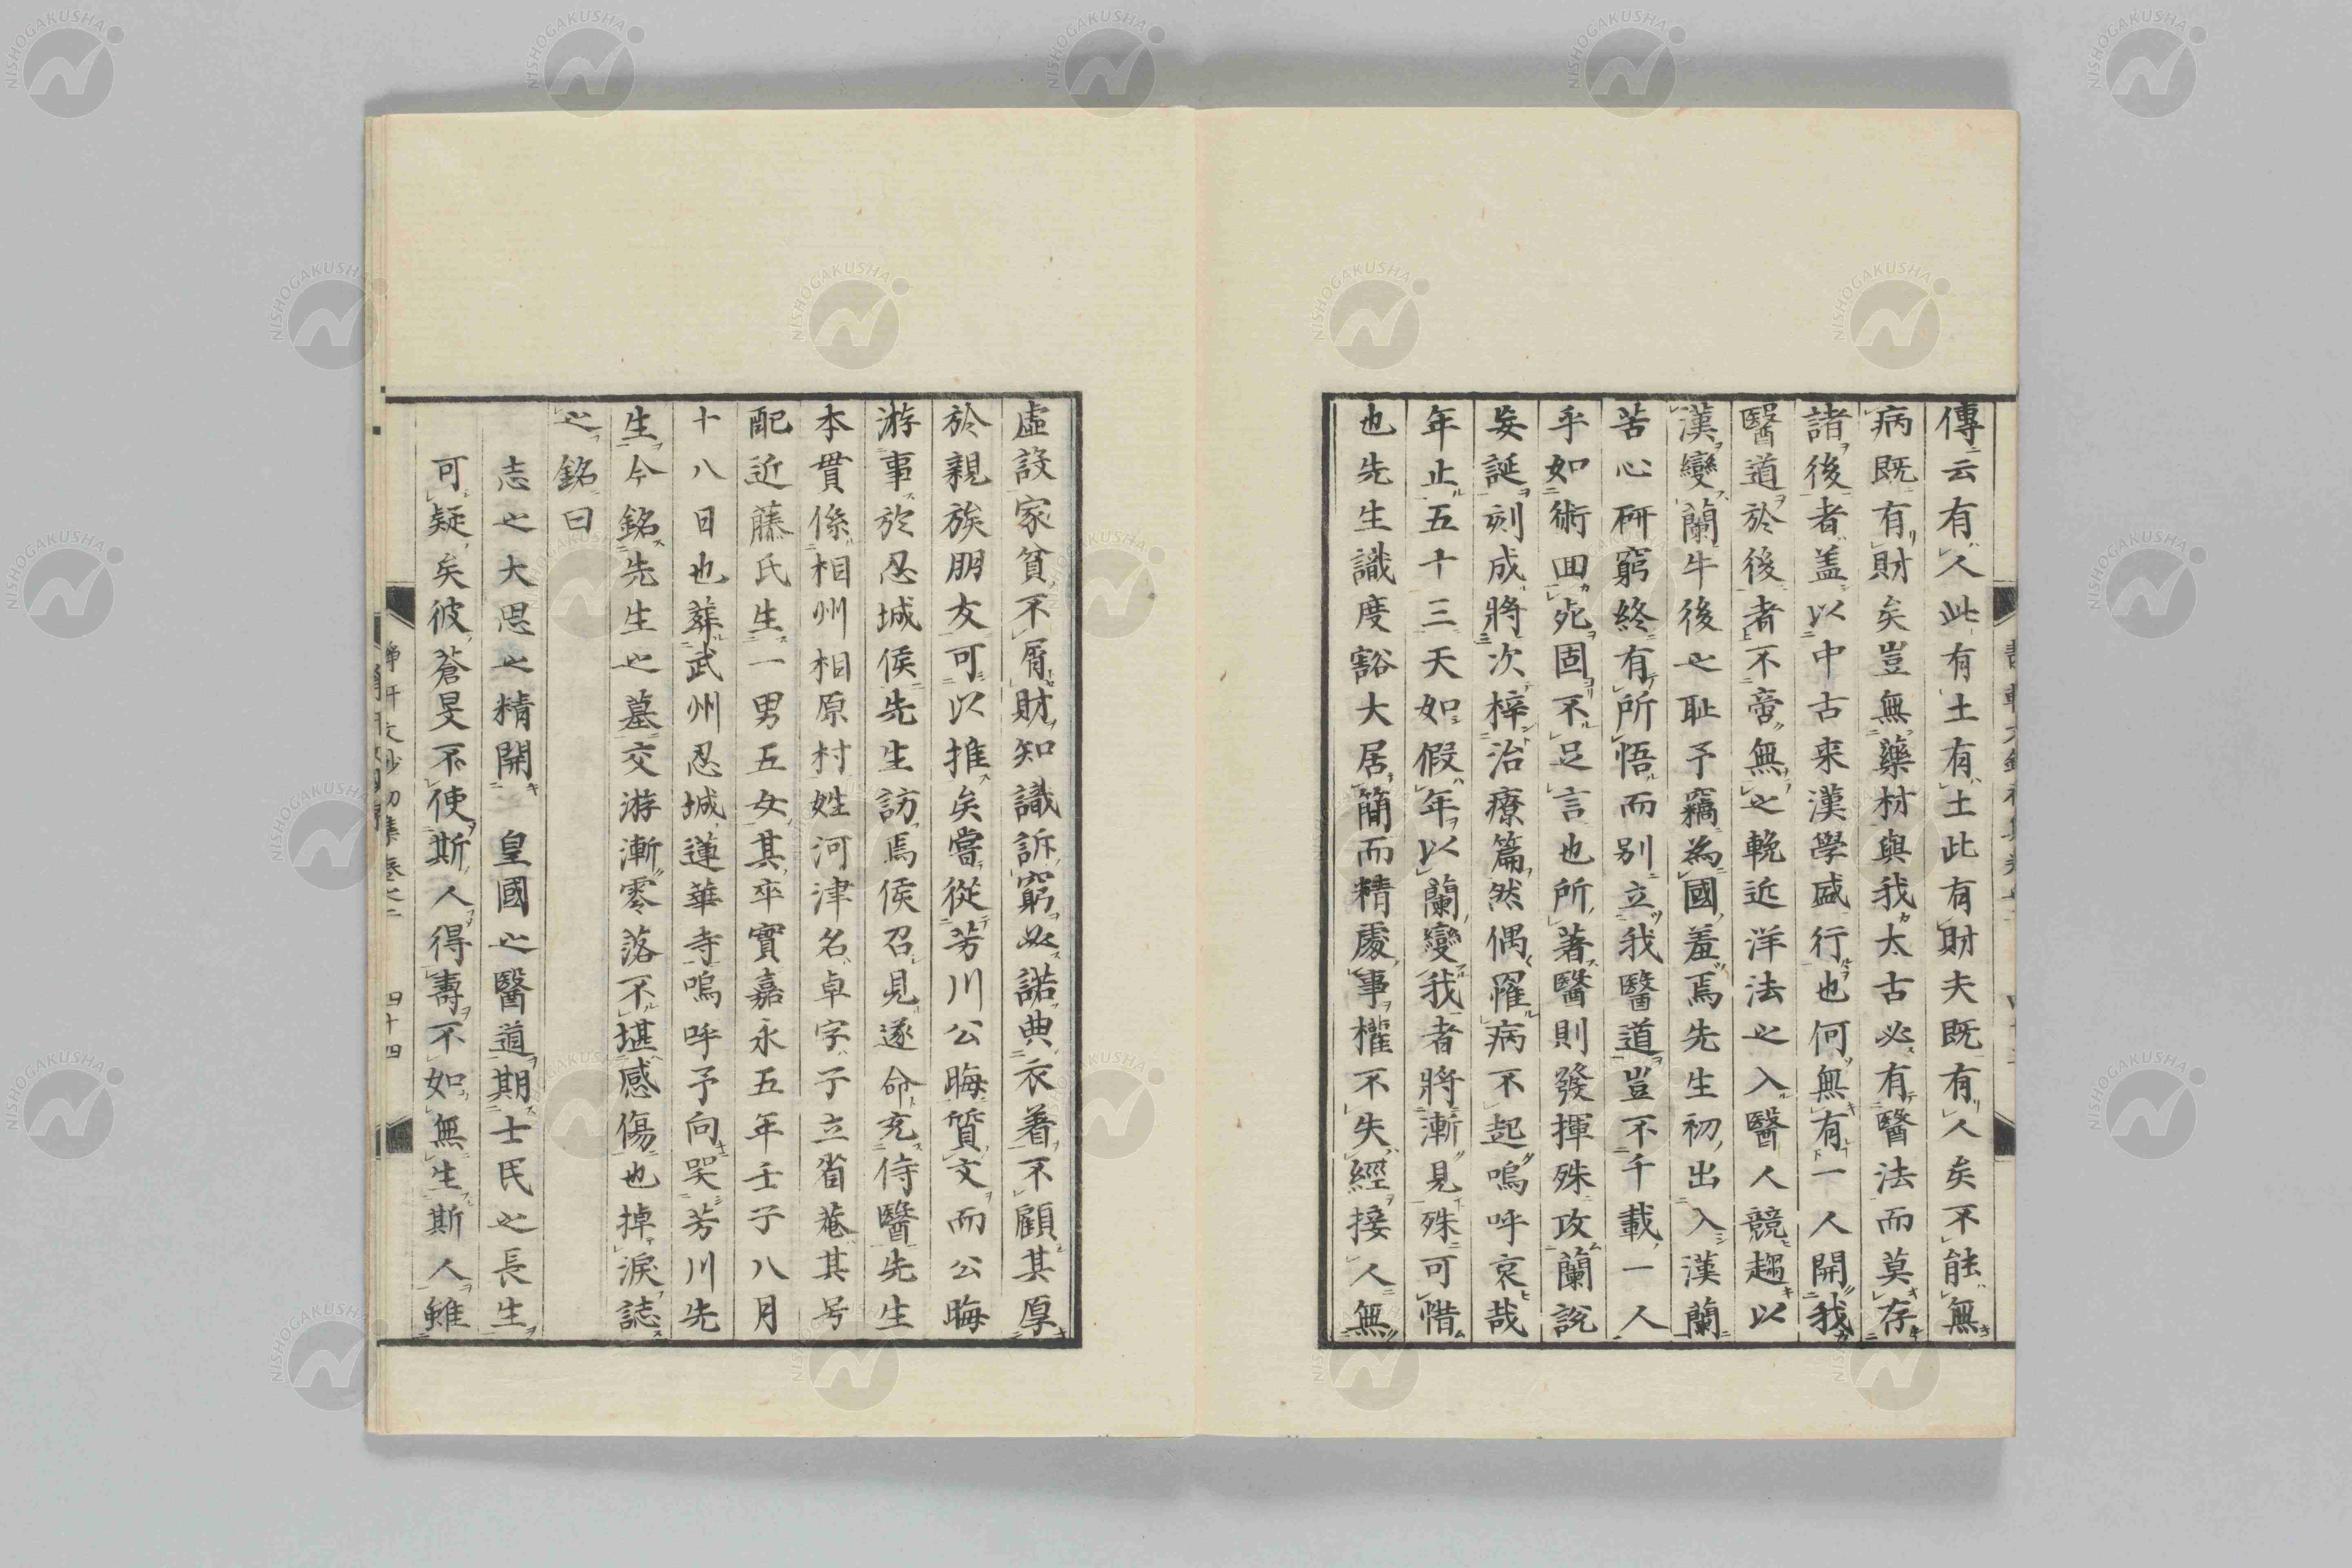 傳云有人此有土有土此有財夫既有人矣不能無
病既有財矣豈無藥材與我太古必有醫法而莫存
諸後者盖以中古来漢學盛行也何無有一人開我
醫道於後者不啻無之輓近洋法之入醫人競趨以
漢變蘭牛後之恥予竊為國羞焉先生初出入漢蘭
苦心研窮終有所悟而別立我醫道豈不千載一人
乎如術回死固不足言也所著醫則發揮殊攻蘭說
妄誕刻成將次梓治療篇然偶罹病不起嗚呼哀哉
年止五十三天如假年以蘭變我者將漸見殊可惜
也先生識度豁大居簡而精處事權不失經接人無
虛設家貧不屑財知識訴窮必諾典衣着不顧其厚
於親族朋友可以推矣嘗從芳川公晦質文而公晦
游事於忍城侯先生訪焉侯召見遂命充侍醫先生
本貫係相州相原村姓河津名卓字子立省菴其号
配近藤氏生一男五女其卒實嘉永五年壬子八月
十八日也葬武州忍城蓮華寺嗚呼予向哭芳川先
生今銘先生之墓交游漸零落不堪感傷也掉淚誌
之銘曰
志之大思之精開　皇國之醫道期士民之長生
可疑矣彼蒼旻不使斯人得壽不如無生斯人雖
四十四
NISHOGAKUSHA